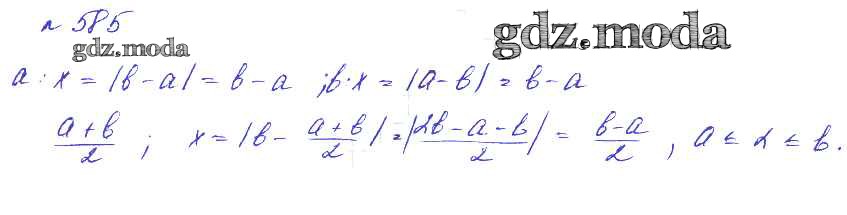 № 585
gdz.moda gdz.moda
a : x = |b - a| = b - a ; b · x = |a - b| = b - a
(a + b)/2 ; x = |b - (a + b)/2| = |(2b - a - b)/2| = (b - a)/2 , a ≤ 2 ≤ b.